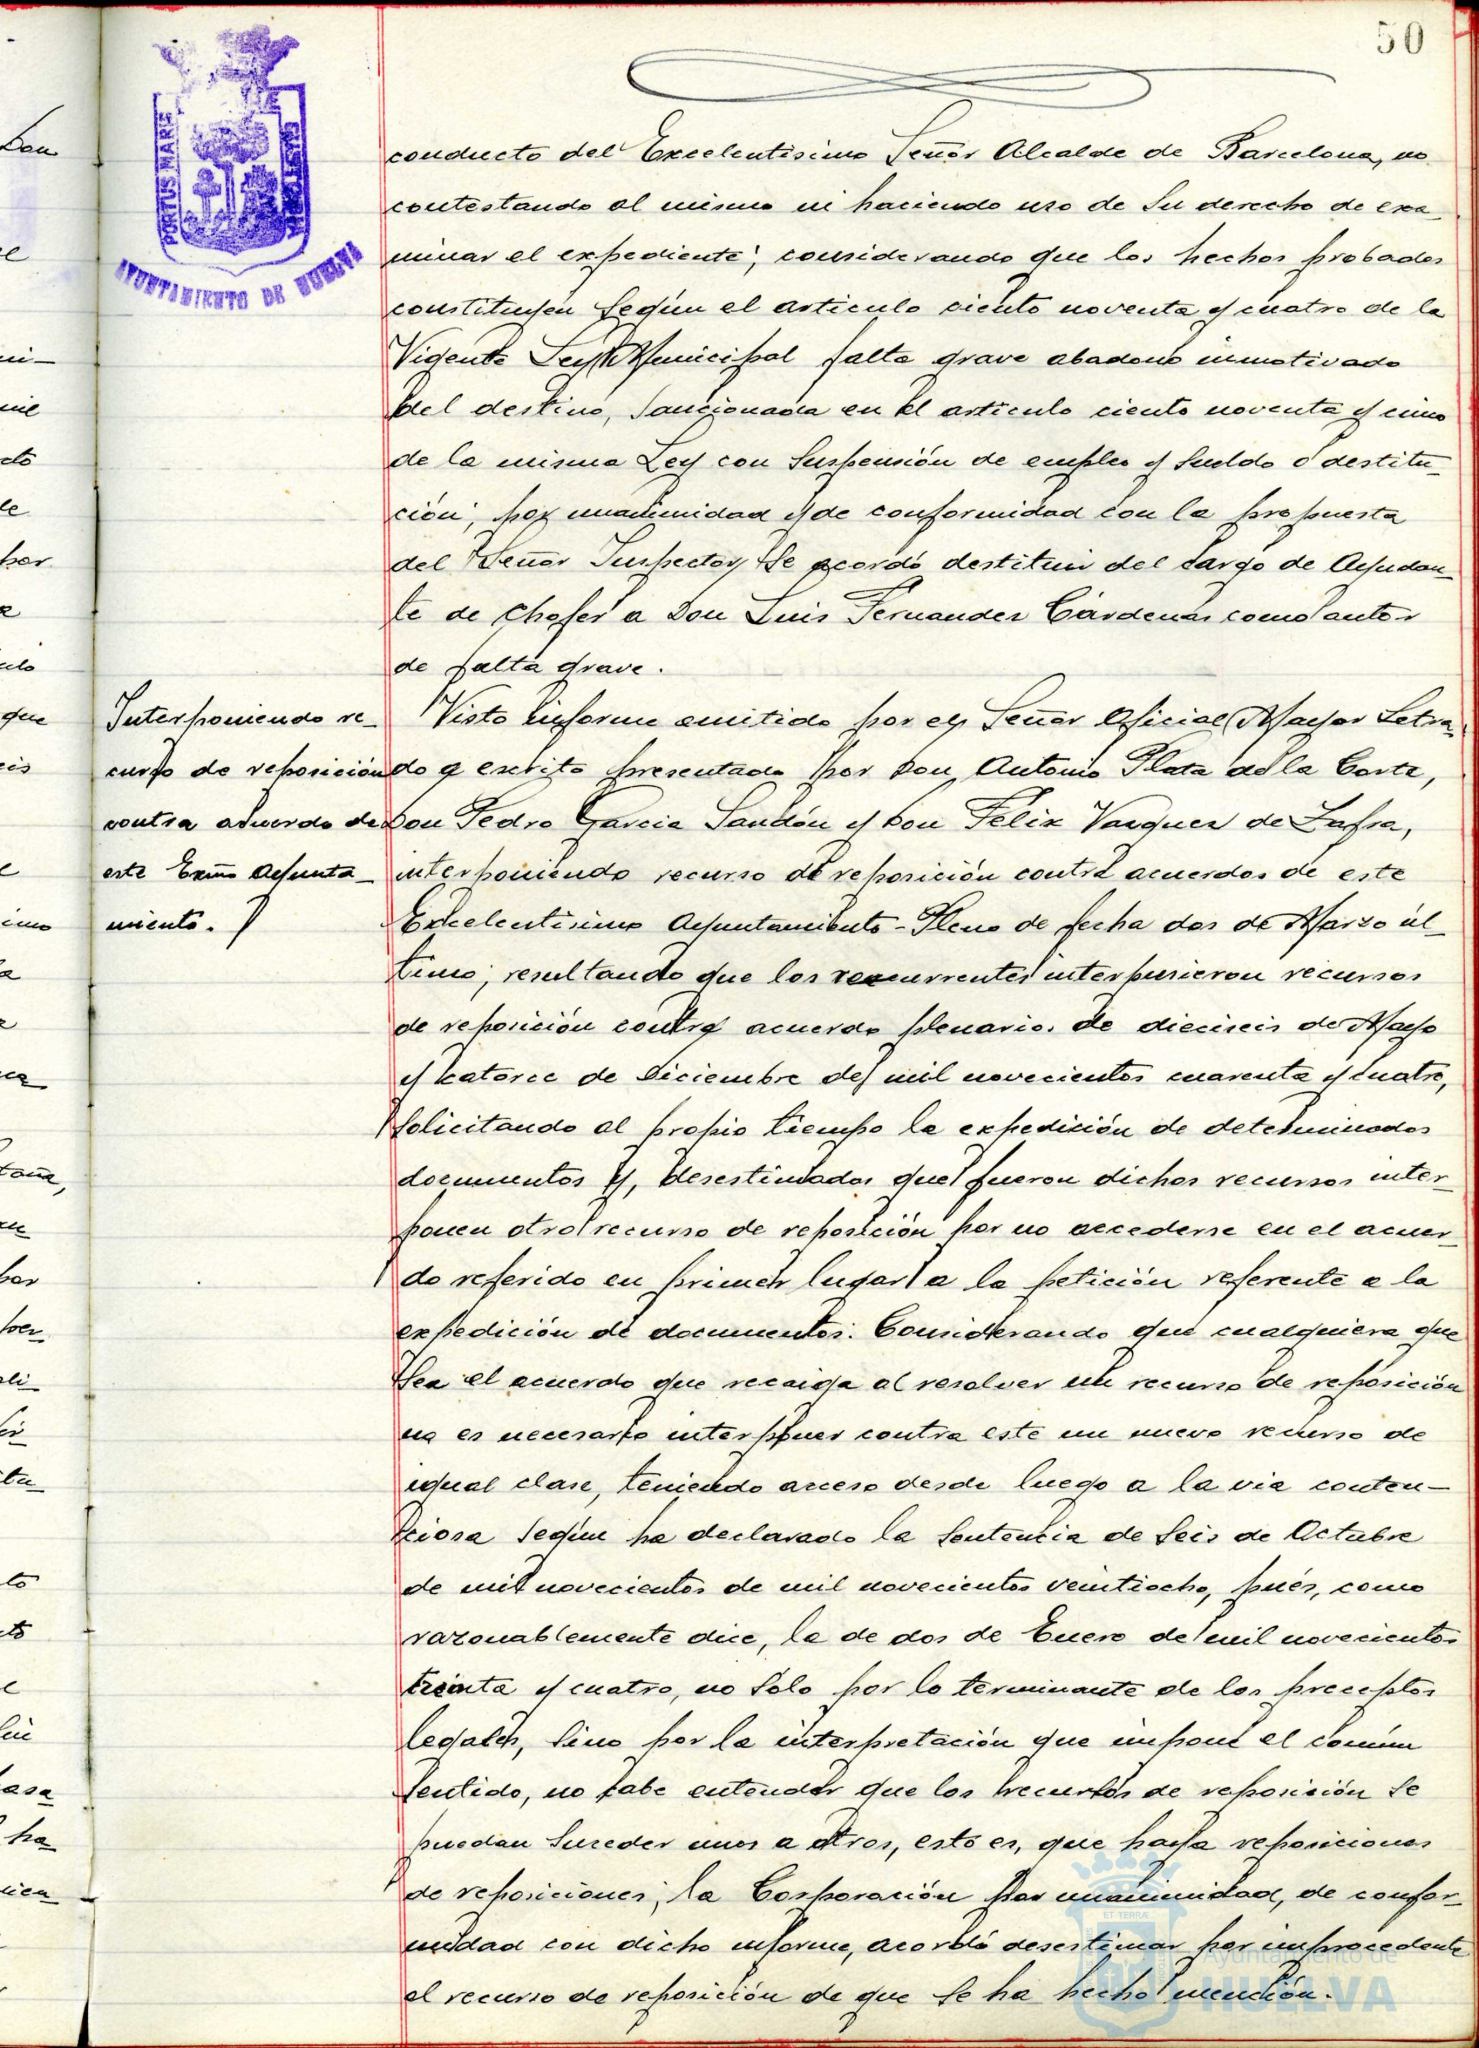 50
PORTUS MARIS
AYUNTAMIENTO DE HUELVA
conducto del Excelentisimo Señor Alcalde de Barcelona, no
contestando al mismo ni haciendo uso de su derecho de exa-
minar el expediente; considerando que los hechos probados
constituyen según el artículo ciento noventa y cuatro de la
Vigente Ley Municipal falta grave abadono inmotivado
del destino, sancionada en el artículo ciento noventa y cinco
de la misma Ley con suspensión de empleo y sueldo o destitu-
ción; por unanimidad y de conformidad con la propuesta
del Señor Inspector, se acordó destituir del cargo de Ayudan-
te de Chofer a Don Luis Fernandez Cárdenas como autor
de falta grave.
Interponiendo re-
curso de reposición
contra acuerdo de
este Exmo Ayunta-
miento.
Visto informe emitido por el Señor Oficial Mayor Letra-
do y escrito presentado por Don Antonio Plata de la Corte,
Don Pedro Garcia Sandón y Don Felix Vazquez de Zafra,
interponiendo recurso de reposición contra acuerdos de este
Excelentisimo Ayuntamiento-Pleno de fecha dos de Marzo úl-
timo; resultando que los recurrentes interpusieron recursos
de reposición contra acuerdo plenario de dieciseis de Mayo
y catorce de Diciembre de mil novecientos cuarenta y cuatro,
solicitando al propio tiempo la expedición de determinados
documentos y, desestimados que fueron dichos recursos inter-
ponen otro recurso de reposición por no accederse en el acuer-
do referido en primer lugar a la petición referente a la
expedición de documentos. Considerando que cualquiera que
sea el acuerdo que recaiga al resolver un recurso de reposición
no es necesario interponer contra este un nuevo recurso de
igual clase, teniendo acceso desde luego a la via conten-
ciosa según ha declarado la Sentencia de Seis de Octubre
de mil novecientos de mil novecientos veintiocho, pués, como
razonablemente dice, la de dos de Enero de mil novecientos
treinta y cuatro, no sólo por lo terminante de los preceptos
legales, sino por la interpretación que impone el común
sentido, no cabe entender que los recursos de reposición se
puedan suceder unos a otros, esto es, que haya reposiciones
de reposiciones; la Corporación por unanimidad, de confor-
midad con dicho informe, acordó desestimar por improcedente
el recurso de reposición de que se ha hecho mención.
Ayuntamiento de
HUELVA